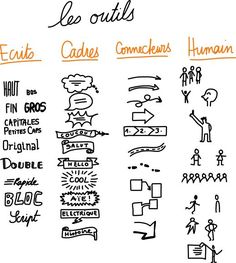 les outils
Ecrits Cadres Connecteurs Humain
HAUT BAS
FIN GROS
CAPITALES
PETITES CAPS
COUCOU!
1. 2. 3.
Original
SALUT
DOUBLE
HELLO
Rapide
COOL
BLOC
AÏE!
Script
ELECTRIQUE